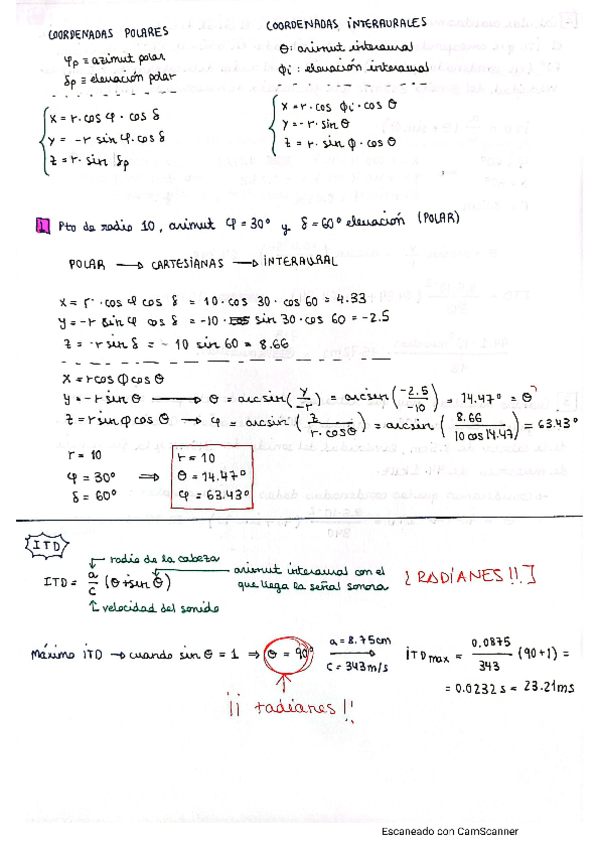 COORDENADAS POLARES
φp ≡ azimut polar
δp ≡ elevación polar
x = r · cos φ · cos δ
y = -r sin φ · cos δ
z = r · sin δp
COORDENADAS INTERAURALES
θ: azimut interaural
ϕi: elevación interaural
x = r · cos ϕi · cos θ
y = -r · sin θ
z = r · sin ϕ · cos θ
1 Pto de radio 10, azimut φ = 30° y δ = 60° elevación (POLAR)
POLAR → CARTESIANAS → INTERAURAL
x = r · cos φ cos δ = 10 · cos 30 · cos 60 = 4.33
y = -r sin φ cos δ = -10 · sin 30 · cos 60 = -2.5
z = -r sin δ = - 10 sin 60 = 8.66
x = r cos ϕ cos θ
y = -r sin θ → θ = arcsin(y/-r) = arcsin(-2.5/-10) = 14.47° = θ
z = r sin φ cos θ → φ = arcsin(z/r·cosθ) = arcsin(8.66/10 cos 14.47) = 63.43°
r = 10
φ = 30°
δ = 60°
⇒
r = 10
θ = 14.47°
φ = 63.43°
ITD
radio de la cabeza
ITD = a/c (θ + sin θ)
azimut interaural con el
que llega la señal sonora
[RADIANES!!]
velocidad del sonido
Máximo ITD → cuando sin θ = 1 ⇒ θ = 90°
a = 8.75cm
c = 343m/s
ITD max = 0.0875/343 (90+1) =
= 0.0232 s = 23.21ms
¡¡ radianes!!
Escaneado con CamScanner